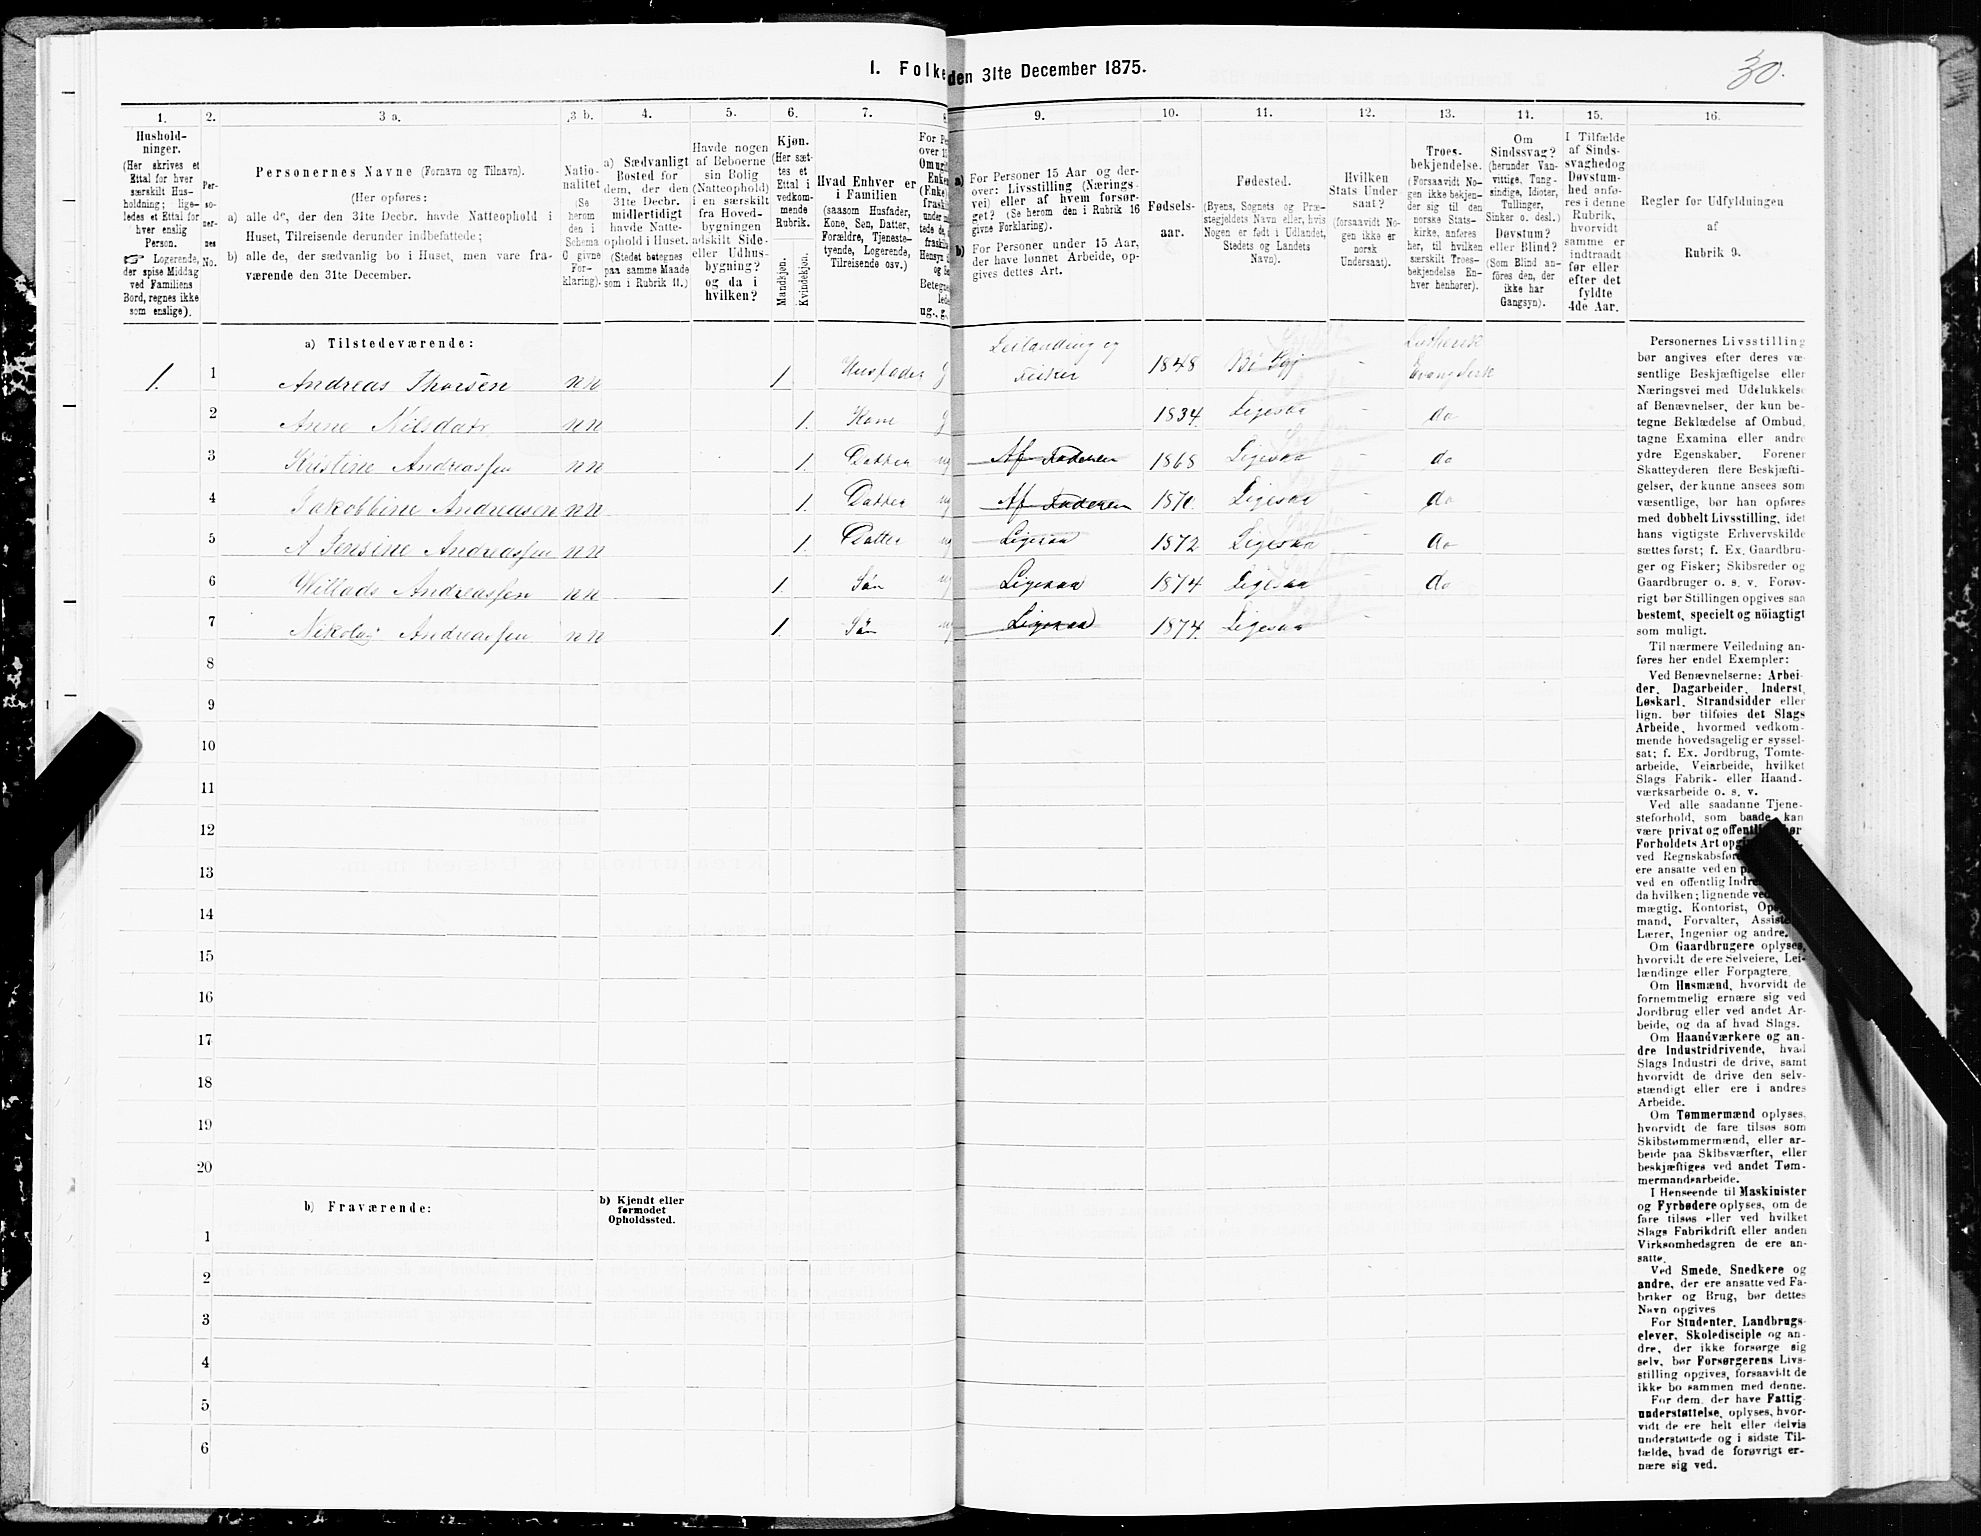 1. Folke den 31te December 1875.
30.
1. 2. 3 a. 3 b. 4. 5. 6. 7. 8 9. 10. 11. 12. 13. 14. 15. 16.
Hushold-
ninger.
(Her skrives et
Ettal for hver
særskilt Hus-
holdning; lige-
ledes et Ettal for
hver enslig
Person.
☞ Logerende,
der spise Middag
ved Familiens
Bord, regnes ikke
som enslige).
Per-
so-
ner-
nes
No.
Personernes Navne (Fornavn og Tilnavn).
(Her opføres:
a) alle de, der den 31te Decbr. havde Natteophold i
Huset, Tilreisende derunder indbefattede;
b) alle de, der sædvanlig bo i Huset, men vare fra-
værende den 31te December.
Natio-
nalitet
(Se
herom
den i
Schema
O givne
For-
klaring).
a) Sædvanligt
Bosted for
dem, der den
31te Decbr.
midlertidigt
havde Natte-
ophold i Huset.
(Stedet betegnes
paa samme Maade
som i Rubrik 11.)
Havde nogen
af Beboerne
sin Bolig
(Natteophold)
i en særskilt
fra Hoved-
bygningen
adskilt Side-
eller Udhus-
bygning?
og da i
hvilken?
Kjøn.
(Her sæt-
tes et
Ettal i
vedkom-
mende
Rubrik.
Mandkjøn.
Kvindekjøn.
Hvad Enhver er
i Familien
(saasom Husfader,
Kone, Søn, Datter,
Forældre, Tjeneste-
tyende, Logerende,
Tilreisende osv.)
For Pe
over 1
Omugi
Enken
(Enke)
fraskil
under m
tede de,
fraskil
Hensyn t
og Se
Betegne
lede
ug., g.,
a) For Personer 15 Aar og der-
over: Livsstilling (Nærings-
vei) eller af hvem forsør-
get? (Se herom den i Rubrik 16
givne Forklaring).
b) For Personer under 15 Aar,
der have lønnet Arbeide, op-
gives dettes Art.
Fødsels-
aar.
Fødested.
(Byens, Sognets og Præ-
stegjeldets Navn eller, hvis
Nogen er født i Udlandet,
Stedets og Landets
Navn).
Hvilken
Stats Under
saat?
(forsaavidt No-
gen ikke er
norsk
Undersaat).
Troes-
bekjendelse.
(Forsaavidt No-
gen ikke bekjen-
der sig til den
norske Stats-
kirke, anføres
her, til hvilken
særskilt Troes-
bekjendelse En-
hver henhører).
Om
Sindssvag?
(herunder Van-
vittige, Tung-
sindige, Idioter,
Tullinger,
Sinker o. desl.)
Døvstum?
eller Blind?
(Som Blind an-
føres den, der
ikke har
Gangsyn).
I Tilfælde
af Sinds-
svaghedog
Døvstum-
hed anfø-
res i denne
Rubrik,
hvorvidt
samme er
indtraadt
før eller
efter det
fyldte
4de Aar.
Regler før Udfyldningen
af
Rubrik 9.
a) Tilstedeværende:
1. 1 Andreas Thorsen nn 1 Husfader g Leilænding og Fisker 1848 - Luthersk Evangelisk
2 Anne Nilsdatr nn 1. Kone g 1834. Ligesaa - do
3 Kristine Andreassen nn 1. Datter ug Af Faderen 1868 Ligesaa - do
4 Jakobbine Andreasen nn 1. Datter ug Af Faderen 1870. Ligesaa - do
5 A Jensine Andreassen nn 1. Datter ug Ligesaa 1872 Ligesaa - do
6 Willads Andreassen nn 1. Søn ug Ligesaa 1874 Ligesaa - do
7 Nikolay Andreassen nn 1. Søn ug Ligesaa 1874. Ligesaa -
8
9
10
11
12
13
14
15
16
17
18
19
20
b) Fraværende:
b) Kjendt eller
formodet
Opholdssted.
1
2
3
4
5
6
Personernes Livsstilling
bør angives efter deres væ-
sentlige Beskjæftigelse eller
Næringsvei med Udelukkelse
af Benævnelser, der kun be-
tegne Beklædelse af Ombud,
tagne Examina eller andre
ydre Egenskaber. Forener
Skatteyderen flere Beskjæfti-
gelser, der kunne ansees som
væsentlige, bør han opføres
med dobbelt Livsstilling, idet
hans vigtigste Erhvervskilde
sættes først; f. Ex. Gaardbru-
ger og Fisker; Skibsreder og
Gaardbruger o. s. v. Forøv-
rigt bør Stillingen opgives saa
bestemt, specielt og nöiagtigt
som muligt.
Til nærmere Veiledning an-
føres her endel Exempler:
Ved Benævnelserne: Arbei-
der, Dagarbeider, Inderst,
Løskarl, Strandsidder eller
lign. bør tilføies det Slags
Arbeide, hvormed vedkom-
mende hovedsagelig er syssel-
sat; f. Ex. Jordbrug, Tomte-
arbeide, Veiarbeide, hvilket
Slags Fabrik- eller Haand-
værksarbeide o. s. v.
Ved alle saadanne Tjene-
steforhold, som baade kan
være privat og offentli bør
Forholdets Art opg
ved Regnskabsfør
ere ansatte ved en p
ved en offentlig Indr
da hvilken; lignende ve
mægtig, Kontorist, Op
mand, Forvalter, Assiste
Lærer, Ingeniør og andre.
Om Gaardbrugere oplyses,
hvorvidt de ere Selveiere, Lei-
lændinge eller Forpagtere.
Om Husmænd, hvorvidt de
fornemmelig ernære sig ved
Jordbrug eller ved andet Ar-
beide, og da af hvad Slags.
Om Haandværkere og an-
dre Industridrivende, hvad
Slags Industri de drive, samt
hvorvidt de drive den selv-
stændigt eller ere i andres
Arbeide.
Om Tømmermænd oplyses,
hvorvidt de fare tilsøs som
Skibstømmermænd, eller ar-
beide paa Skibsværfter, eller
beskjæftiges ved andet Tøm-
mermandsarbeide.
I Henseende til Maskinister
og Fyrbødere oplyses, om de
fare tilsøs eller ved hvilket
Slags Fabrikdrift eller anden
Virksomhedsgren de ere an-
satte.
Ved Smede, Snedkere og
andre, der ere ansatte ved Fa-
briker og Brug, bør dettes
Navn opgives
For Studenter, Landbrugs-
elever, Skoledisciple og an-
dre, der ikke forsørge sig
selv, bør Forsørgerens Livs-
stilling opgives, forsaavidt de
ikke bo sammen med denne.
For dem, der have Fattig-
understøttelse, oplyses, hvor-
vidt de ere helt eller delvis
understøttede og i sidste Til-
fælde, hvad de forøvrigt er-
nære sig ved.